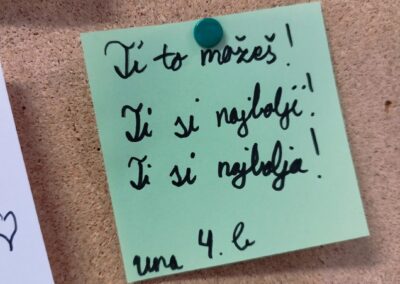 Ti to možeš!
Ti si najbolji!
Ti si najbolja!
una 4. b